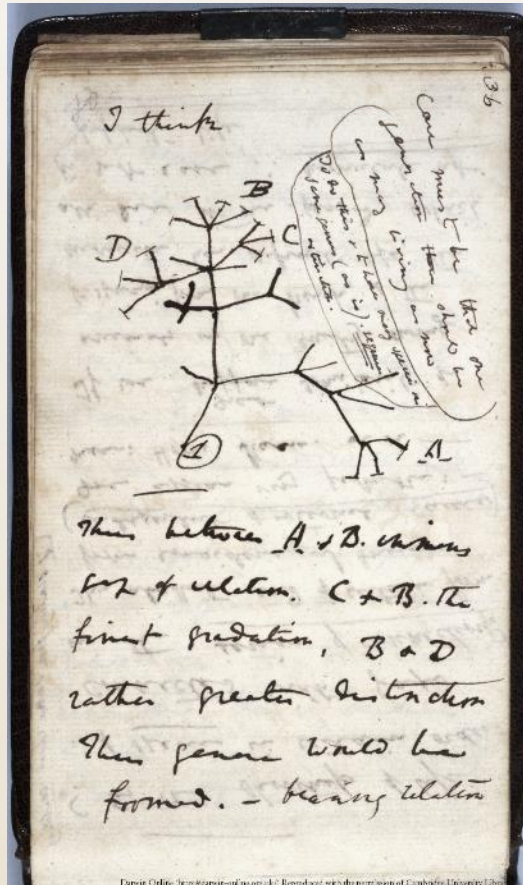 36
I think
Case must be that one
generation then should be
as many living as now
To do this & to have many species in
same genus (as is) requires
extinction.
B
D
C
1
A
Thus between A & B. immens
gap of relation. C & B. the
finest gradation, B & D
rather greater distinction
Thus genera would be
formed. — bearing relation
Darwin Online (http://darwin-online.org.uk/) Reproduced with the permission of Cambridge University Library